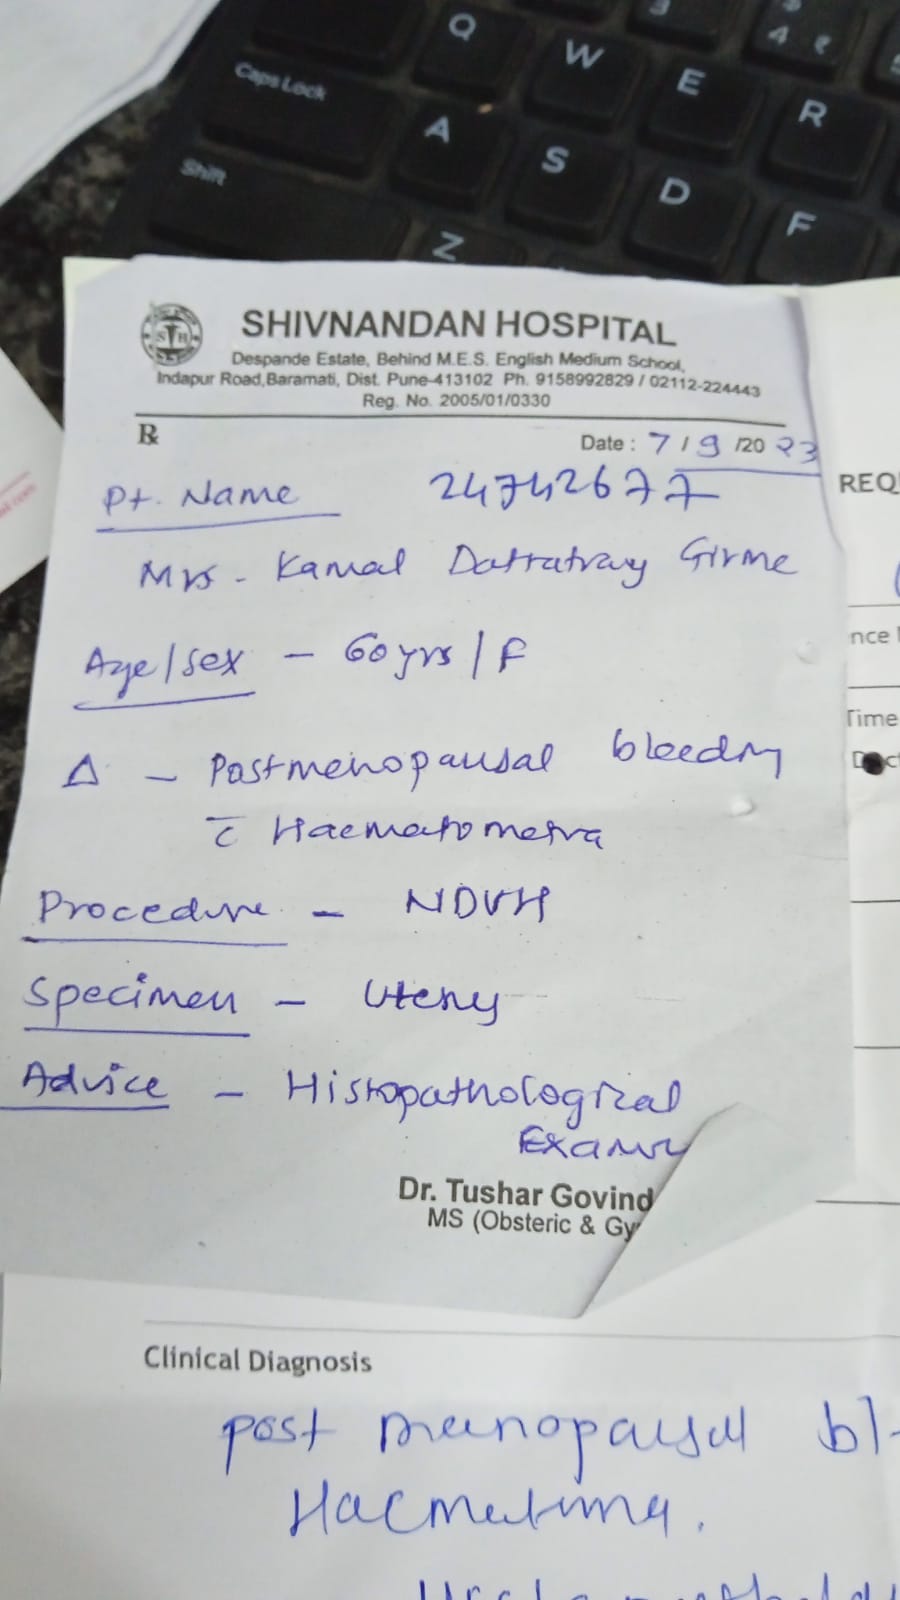 Q W E R
3
4 ₹
Caps Lock A S D F
Shift Z
SHIVNANDAN HOSPITAL
Despande Estate, Behind M.E.S. English Medium School,
Indapur Road,Baramati, Dist. Pune-413102 Ph. 9158992829 / 02112-224443
Reg. No. 2005/01/0330
℞
Date : 7 / 9 /20 23
Pt. Name 24742677
Mrs - Kamal Dattatray Girme
Age/sex - 60 yrs / F
Δ - Postmenopausal bleeding
c̄ Haematometra
Procedure - NDVH
Specimen - Uterus
Advice - Histopathological
Exam
Dr. Tushar Govind
MS (Obsteric & Gy
REQ
nce
Time
Clinical Diagnosis
post menopausal bl